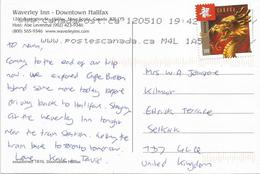 Waverley Inn - Downtown Halifax
1266 Barrington Street, Halifax, Nova Scotia, Canada B3J 1Y5
Host: Abe Leventhal (902) 423-9346
(800) 565-9346 www.waverleyinn.com
120510 19:42
www.postescanada.ca M4L 1A5
CANADA
Hi Nana,
Coming to the end of our trip
now. We explored Cape Breton
Island some more today before
on way back to Halifax. Staying
at the Waverley Inn tonight
near the train station. Taking the
train back to Toronto tomorrow.
Love
Mrs W A
Kilmuir
Ettrick Terrace
Selkirk
TD7 4LQ
United Kingdom